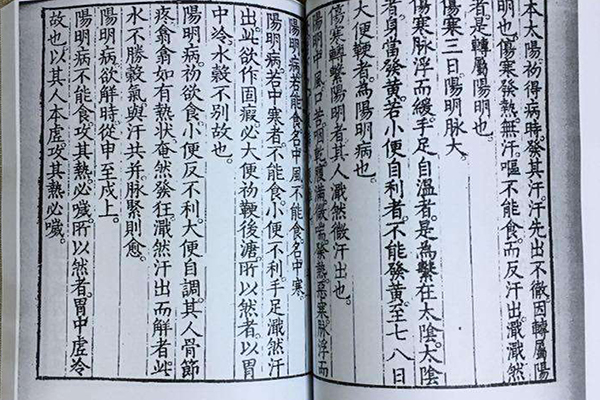 本太陽初得病時。發其汗。汗先出不徹。因轉屬陽
明也。傷寒發熱無汗。嘔不能食。而反汗出濈濈然
者。是轉屬陽明也。
傷寒三日。陽明脈大。
傷寒脈浮而緩。手足自溫者。是為繫在太陰。太陰
者。身當發黃。若小便自利者。不能發黃。至七八日
大便鞕者。為陽明病也。
傷寒轉繫陽明者。其人濈然微汗出也。
陽明中風。口苦咽乾。腹滿微喘。發熱惡寒。脈浮而
陽明病。若能食。名中風。不能食。名中寒。
陽明病。若中寒者。不能食。小便不利。手足濈然汗
出。此欲作固瘕。必大便初鞕後溏。所以然者。以胃
中冷。水穀不別故也。
陽明病。初欲食。小便反不利。大便自調。其人骨節
疼。翕翕如有熱狀。奄然發狂。濈然汗出而解者。此
水不勝穀氣。與汗共并。脈緊則愈。
陽明病。欲解時。從申至戌上。
陽明病。不能食。攻其熱必噦。所以然者。胃中虛冷
故也。以其人本虛。攻其熱必噦。